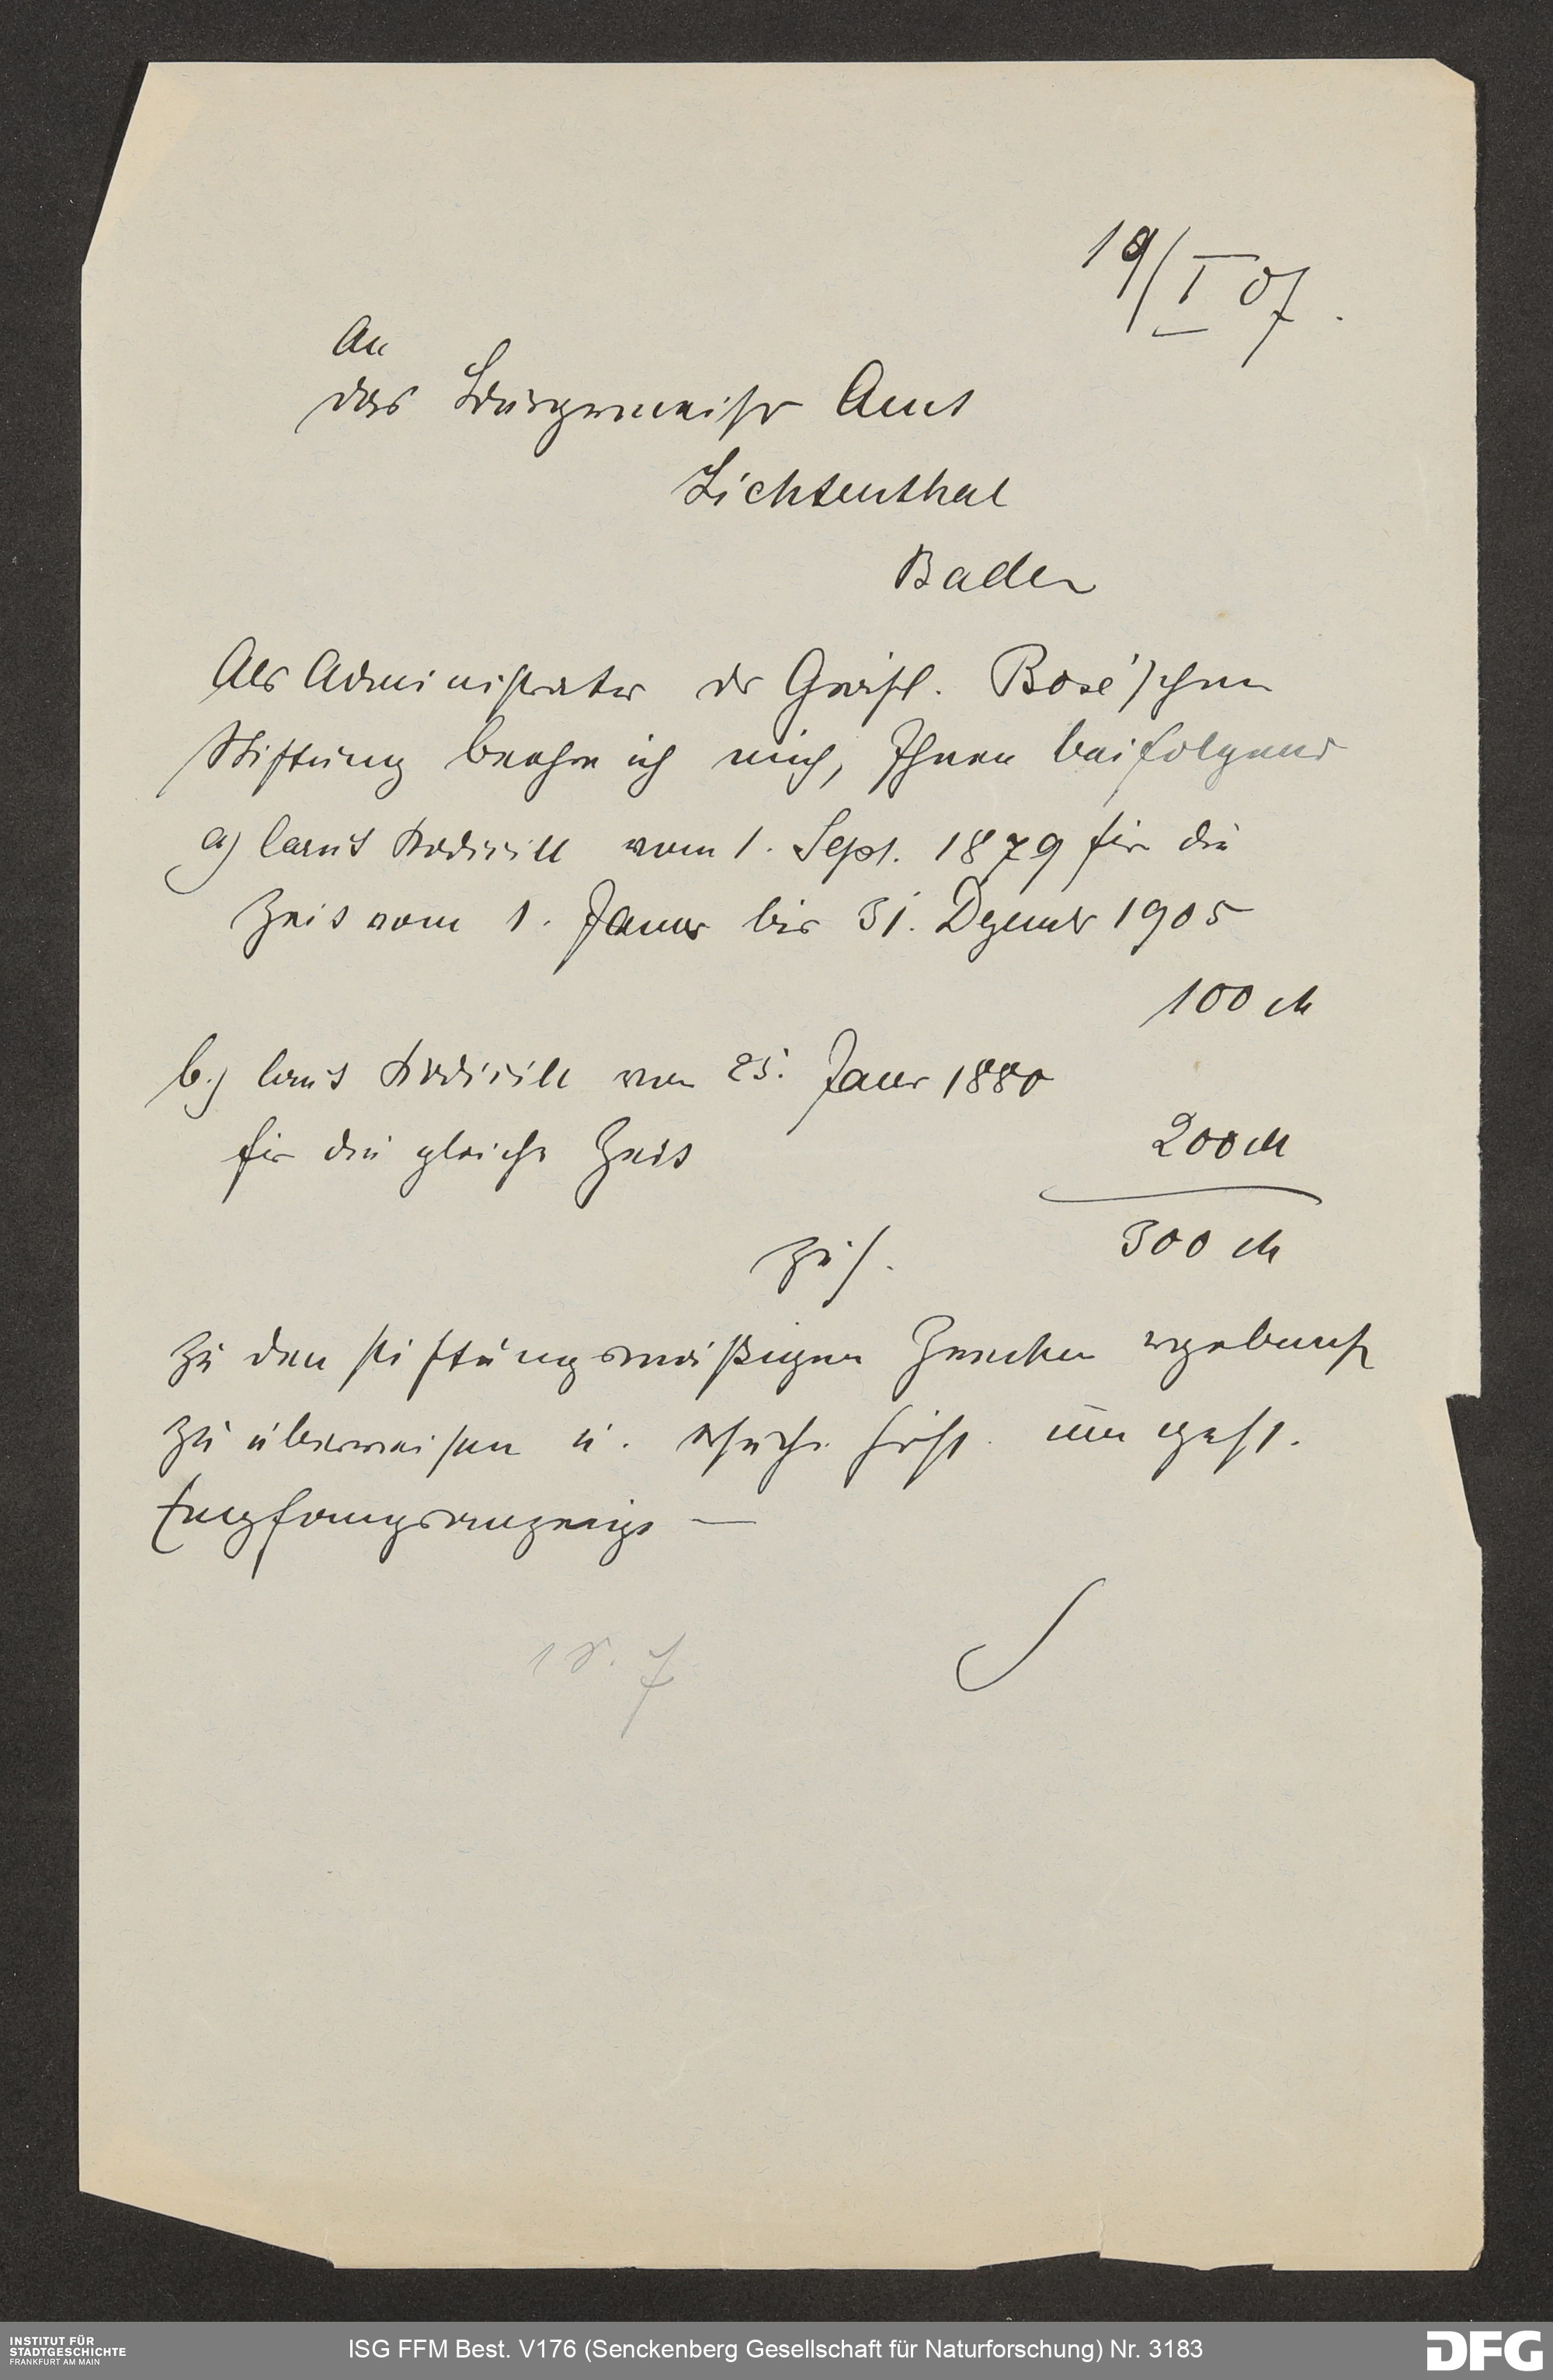 19/I 07.
An
das Bürgermeister Amt
Lichtenthal
Baden
Als Administrator der Gräfl. Bose'schen
Stiftung beehre ich mich, Ihnen beifolgend
a) laut Kodicill vom 1. Sept. 1879 für die
Zeit vom 1. Januar bis 31. Dezember 1905
100 M
b.) laut Kodicill vom 25. Januar 1880
für die gleiche Zeit
200 M
zus.
300 M
zu den stiftungsmäßigen Zwecken ergebenst
zu überweisen u. ersuche höfl. um gefl.
Empfangsanzeige —
INSTITUT FÜR
STADTGESCHICHTE
FRANKFURT AM MAIN
ISG FFM Best. V176 (Senckenberg Gesellschaft für Naturforschung) Nr. 3183
DFG